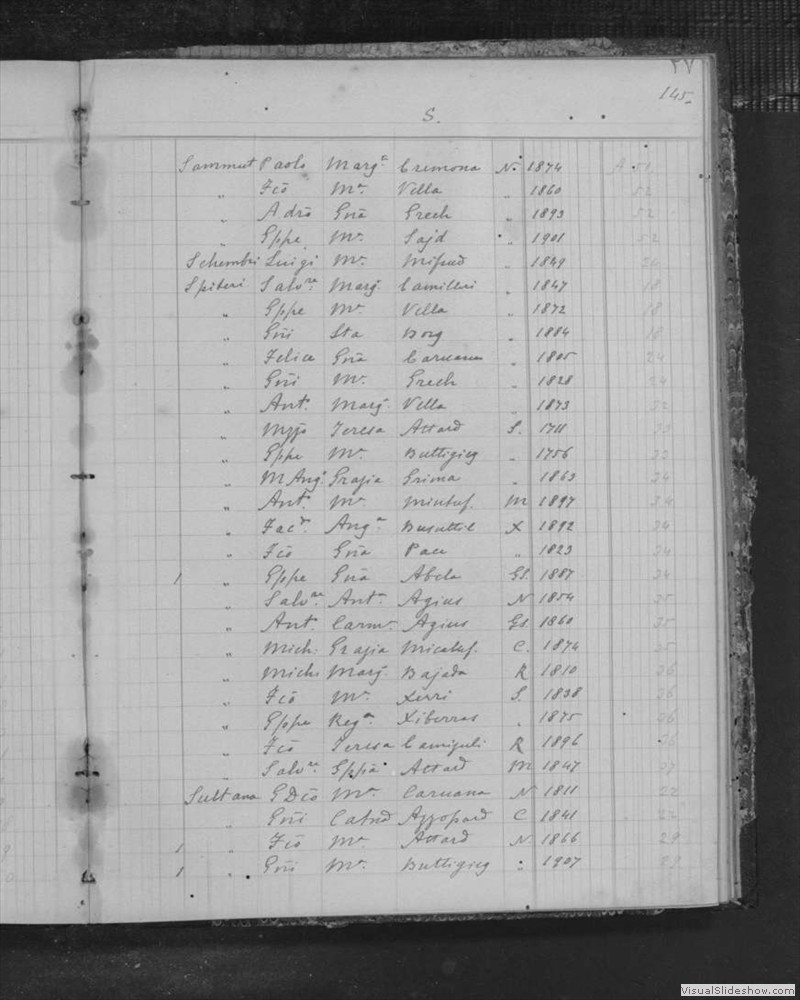 145.
S.
Sammut Paolo Marg.a Cremona N. 1874 A 51
" Fcõ Ma. Vella " 1860 52
" Adrõ Gnã Grech " 1893 52
" Gppe Ma. Sajd " 1901 52
Schembri Luigi Ma. Mifsud " 1849
Spiteri Salv.re Marg. Camilleri " 1847 18
" Gppe Ma. Vella " 1872 18
" Gnñi Sta Borg " 1884 18
" Felice Gnã Caruana " 1805 24
" Gnñi Ma. Grech " 1828 24
" Ant.o Marg. Vella " 1873 32
" Teresa Attard S. 1711
" Gppe Ma. Buttigieg " 1756
" M Ang.o Grazia Grima " 1863 34
" Ant.o Ma. Mintuf. M 1897 34
" Ang.a Busuttil X 1892 34
" Fcõ Gnã Pace " 1823 34
1 " Gppe Gnã Abela Gs. 1887 34
" Salv.re Ant.a Agius N 1854 35
" Ant.o Carm. Agius Gs. 1860 35
" Mich. Grazia Micalef. C. 1874 35
" Mich. Marg. Bajada R 1810 36
" Fcõ Ma. Xerri S. 1838 36
" Gppe Reg.a Xiberras " 1875 36
" Fcõ Teresa R 1896 36
" Salv.re Gppa Attard M 1847 37
Sultana GDcõ Ma. Caruana N 1811 22
" Gnñi Catnã Azzopard C 1841 22
1 " Fcõ Ma. Attard N 1866 29
1 " Gnñi Ma. Buttigieg " 1907 29
VisualSlideshow.com